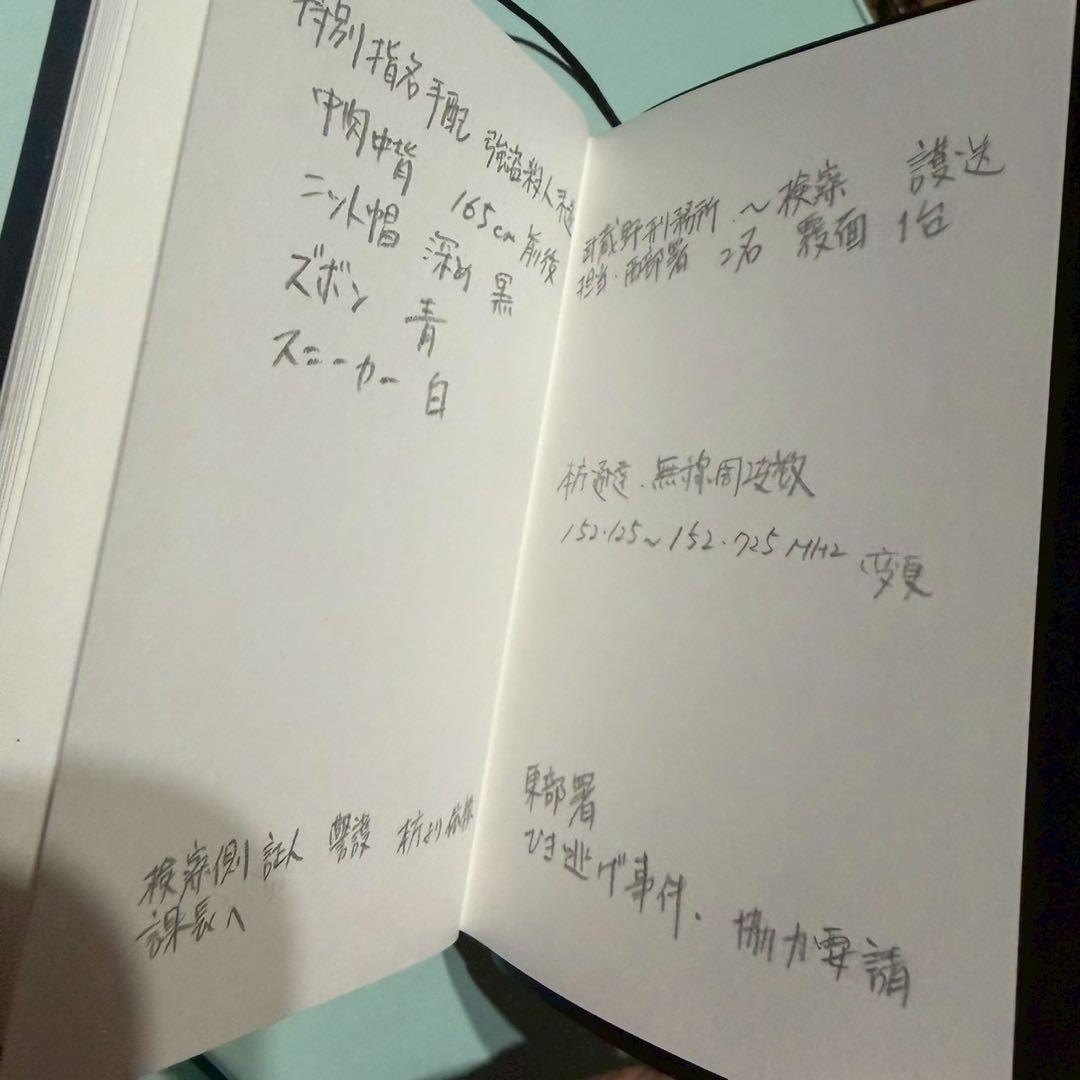 特別指名手配 強盗殺人未遂
中肉中背 165cm前後
ニット帽 深め 黒
ズボン 青
スニーカー 白
検察側証人 警護 本庁より依頼
課長へ
武蔵野刑務所~検察 護送
担当・西部署 2名 覆面 1台
本庁通達.無線周波数
152.125~152.725MHz 変更
東部署
ひき逃げ事件、協力要請